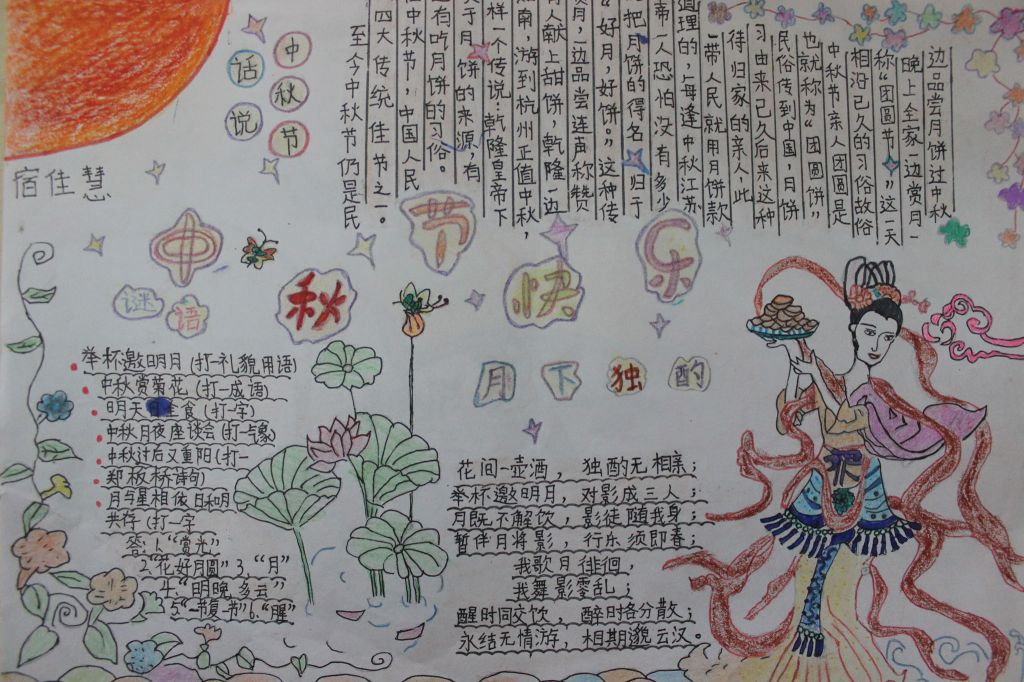 话说
中秋节
至今中秋节仍是民
四大传统佳节之一。
在中秋节:中国人民
还有吃月饼的习俗。
关于月饼的来源,有
样一个传说:乾隆皇帝下
南,游到杭州正值中秋,
有人献上甜饼,乾隆一边
赏月,一边品尝连声称赞
“好月,好饼。”这种传
把月饼的得名归于
帝一人恐怕没有多少
道理的,每逢中秋江苏
一带人民就用月饼款
待归家的亲人此
习由来已久后来这种
民俗传到中国,月饼
也就称为“团圆饼”
中秋节亲人团圆是
相沿已久的习俗故俗
称“团圆节”这一天
晚上全家一边赏月一
边品尝月饼过中秋
宿佳慧
中秋节快乐
谜语
举杯邀明月(打一礼貌用语)
中秋赏菊花(打一成语)
明天日全食(打一字)
中秋月夜座谈会(打一气象)
中秋过后又重阳(打一
郑板桥诗句)
月与星相依日和月
共存(打一字
答:1.“赏光”
2.“花好月圆”3,“月”
4.“明晚多云”
5“一节复一节”6.“腥”
月下独酌
花间一壶酒,独酌无相亲;
举杯邀明月,对影成三人;
月既不解饮,影徒随我身;
暂伴月将影,行乐须即春;
我歌月徘徊,
我舞影零乱;
醒时同交饮,醉时各分散;
永结无情游,相期邈云汉。